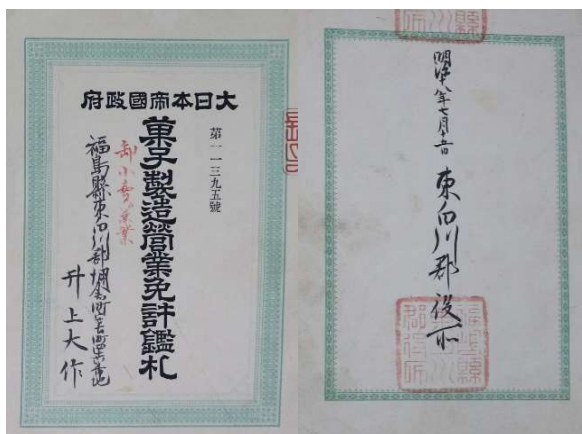 大日本帝國政府
第一一三九五號
菓子製造營業免許鑑札
卸小賣兼業
福島縣東白川郡塙
井上大作
明治 年七月十 日 東白川郡役所